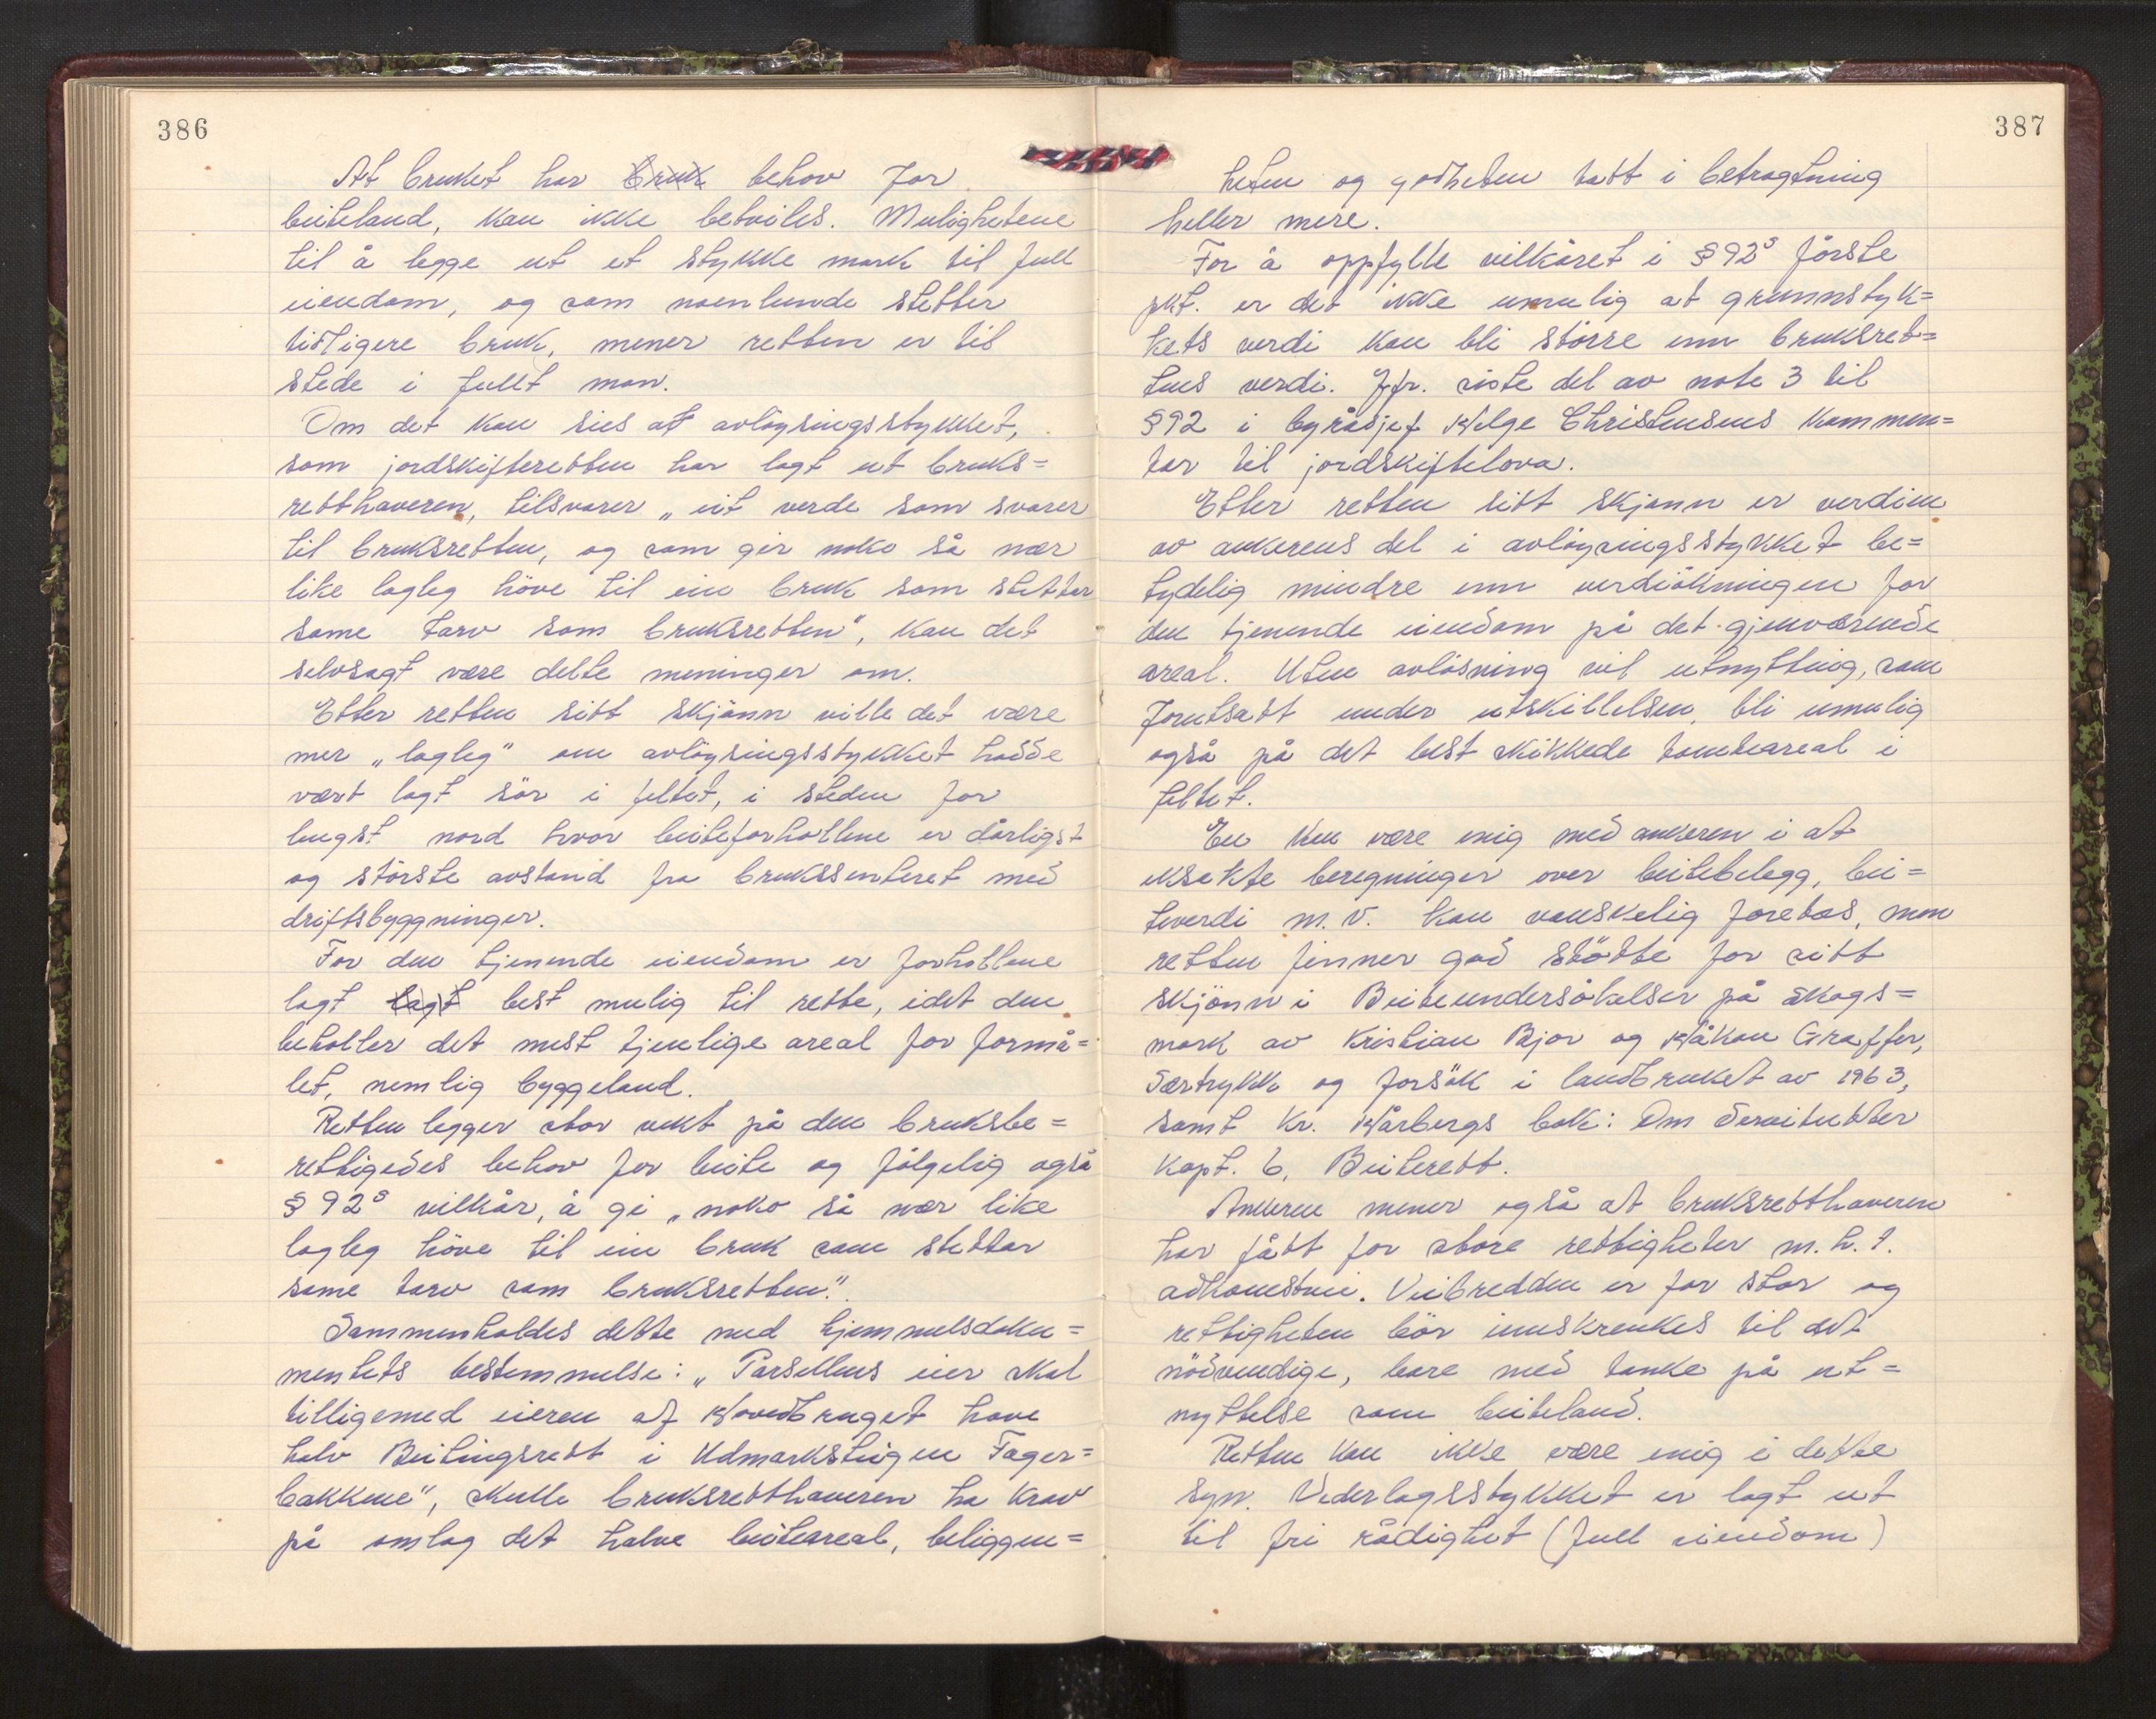 386
At bruket har bruk behov for
beiteland, kan ikke betviles. Mulighetene
til å legge ut et stykke mark til full
eiendom, og som noenlunde stetter
tidligere bruk, mener retten er til
stede i fullt mon.
Om det kan sies at avløysingsstykket,
som jordskifteretten har lagt ut bruks=
retthaveren, tilsvarer „eit verde som svarer
til bruksretten, og som gir noko så nær
like lagleg höve til ein bruk som stettar
same tarv som bruksretten", kan det
selvsagt være delte meninger om.
Etter retten sitt skjönn ville det være
mer „lagleg" om avlöysingsstykket hadde
vært lagt sör i feltet, i steden for
lengst nord hvor beiteforholdene er dårligst
og störste avstand fra brukssenteret med
driftsbyggninger.
For den tjenende eiendom er forholdene
lagt lagt best mulig til rette, idet den
beholder det mest tjenlige areal for formå=
let, nemlig byggeland.
Retten legger stor vekt på den bruksbe=
rettigedes behov for beite og fölgelig også
§ 92⁵ vilkår, å gi „noko så nær like
lagleg höve til ein bruk som stettar
same tarv som bruksretten".
Sammenholdes dette med hjemmelsdoku=
mentets bestemmelse: „Parsellens eier skal
tilligemed eieren af Hovedbruget have
halv Beitingsrett i Udmarksteigen Fager=
bakkene", skulle bruksretthaveren ha krav
på omlag det halve beiteareal, beliggen=
387
heten og godheten tatt i betragtning
heller mere.
For å oppfylle vilkåret i § 92⁵ förste
pkt. er det ikke umulig at grunnstyk=
kets verdi kan bli större enn bruksret=
tens verdi. Jfr. siste del av note 3 til
§ 92 i byråsjef Helge Christensens kommen=
tar til jordskiftelova.
Etter retten sitt skjønn er verdien
av ankerens del i avlöysingsstykket be=
tydelig mindre enn verdiökningen for
den tjenende eiendom på det gjenværende
areal. Uten avlösning vil utnytting, som
forutsatt under utskillelsen, bli umulig
også på det best skikkede tomteareal i
feltet.
En kan være enig med ankeren i at
eksakte beregninger over beitebelegg, bei=
teverdi m.v. kan vanskelig foretas, men
retten finner god stötte for sitt
skjönn i Beiteundersökelser på skogs=
mark av Kristian Bjor og Håkon Graffer,
Særtrykk og forsök i landbruket av 1963,
samt Kr. Hårbergs bok: Om Servitutter
Kapt. 6, Beiterett.
Ankeren mener også at bruksretthaveren
har fått for store rettigheter m.h.t.
adkomstvei. Veibredden er for stor og
rettigheten bör innskrenkes til det
nödvendige, bare med tanke på ut=
nyttelse som beiteland.
Retten kan ikke være enig i dette
syn. Vederlagsstykket er lagt ut
til fri rådighet (full eiendom)